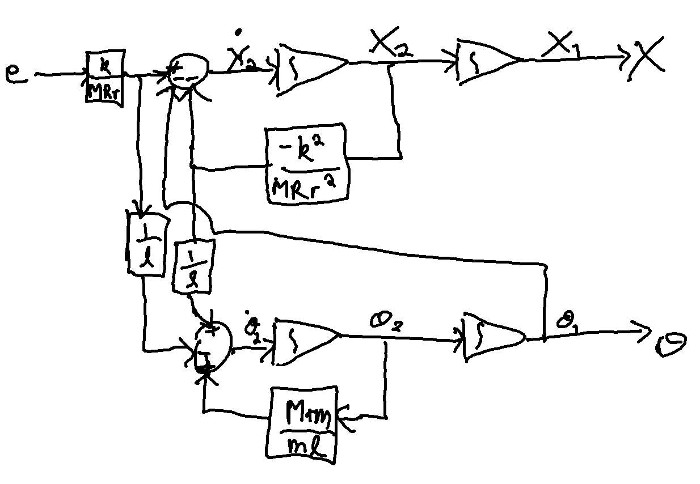 e k/MRr + - Ẋ₂ ∫ X₂ ∫ X₁ X
-k²/MRr²
1/l 1/l
+ - + θ̇₂ ∫ θ₂ ∫ θ₁ θ
M+m/ml